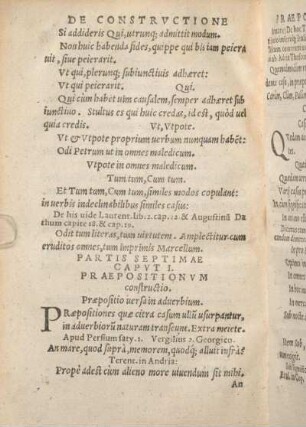 DE CONSTRVCTIONE
Si addideris Qui, utrunq; admittit modum.
Non huic habenda fides, quippe qui bis iam peiera
uit, siue peierarit.
Vt qui, plerunq; subiunctiuis adhæret:
Vt qui peierarit. Qui.
Qui cùm habet uim causalem, semper adhæret sub
iunctiuo. Stultus es qui huic credas, id est, quòd uel
quia credis. Vt, Vtpote.
Vt & Vtpote proprium uerbum nunquam habẽt:
Odi Petrum ut in omnes maledicum.
Vtpote in omnes maledicum.
Tum tum, Cum tum.
Et Tum tum, Cum tum, similes modos copulant:
in uerbis indeclinabilibus similes casus:
De his uide Laurent. lib. 2. cap. 12. & Augustinũ Da
thum capite 18. & cap. 19.
Odit tum literas, tum uirtutem. Amplectitur cum
eruditos omnes, tum imprimis Marcellum.
PARTIS SEPTIMAE
CAPVT I.
PRAEPOSITIONVM
constructio.
Præpositio uersa in aduerbium.
Præpositiones quæ citra casum ullũ usurpantur,
in aduerbiorũ naturam transeunt. Extra meiete.
Apud Persium saty. 1. Vergilius 2. Georgico.
An mare, quod suprà, memorem, quodq; alluit infrà?
Terent. in Andria:
Propè adest cùm alieno more uiuendum sit mihi.
An